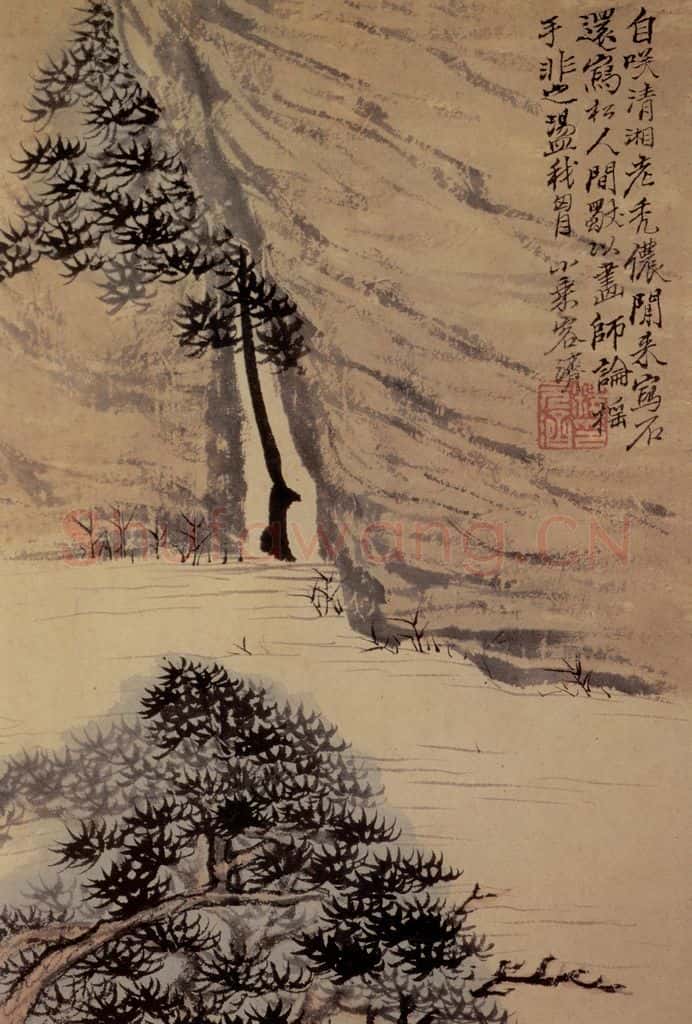 自咲清湘老秃儂閒来寫石
還寫松人間獸以畫師論摇
手非也盪我胷 小乘客濟
Shufawang.CN